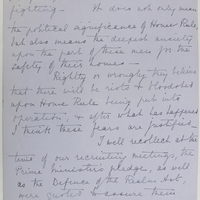 fighting — It does not only mean
the political significance of Home Rule,
but also means the deepest anxiety
upon the part of these men for the
safety of their homes —
Rightly or wrongly they believe
that there will be riots & bloodshed
upon Home Rule being put into
operation, & after what has happened
I think these fears are justified.
I well recollect at the
time of our recruiting meetings, the
Prime Ministers pledge, as well
as the Defence of the Realm Act,
were quoted to assure them